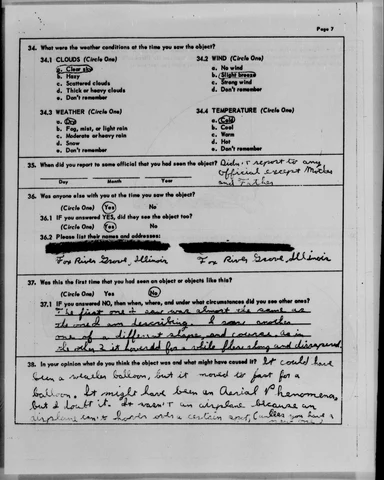 Page 7
34. What were the weather conditions at the time you saw the object?
34.1 CLOUDS (Circle One)
a. Clear sky
b. Hazy
c. Scattered clouds
d. Thick or heavy clouds
e. Don't remember
34.2 WIND (Circle One)
a. No wind
b. Slight breeze
c. Strong wind
d. Don't remember
34.3 WEATHER (Circle One)
a. Dry
b. Fog, mist, or light rain
c. Moderate or heavy rain
d. Snow
e. Don't remember
34.4 TEMPERATURE (Circle One)
a. Cold
b. Cool
c. Warm
d. Hot
e. Don't remember
35. When did you report to some official that you had seen the object? Didn't report to any
official except Mother
and Father
Day Month Year
36. Was anyone else with you at the time you saw the object?
(Circle One) Yes No
36.1 IF you answered YES, did they see the object too?
(Circle One) Yes No
36.2 Please list their names and addresses:
Fox River Grove, Illinois Fox River Grove, Illinois
37. Was this the first time that you had seen an object or objects like this?
(Circle One) Yes No
37.1 IF you answered NO, then when, where, and under what circumstances did you see other ones?
The first one I saw was almost the same as
the one I am describing. I saw another
one of a different shape, and course as in
the other 2 it hovered for a while flew along and disappeared.
38. In your opinion what do you think the object was and what might have caused it? It could have
been a weather balloon, but it moved to fast for a
balloon. It might have been an Aerial Phenomena,
but I doubt it. It wasn't an airplane because an
airplane can't hover over a certain spot, (unless you have a